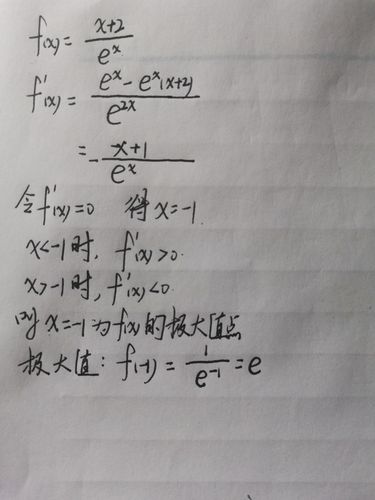 f(x) = (x+2)/e^x
f'(x) = (e^x - e^x(x+2))/e^(2x)
= -(x+1)/e^x
令f'(x)=0 得x=-1
x<-1时, f'(x)>0.
x>-1时, f'(x)<0.
则x=-1为f(x)的极大值点
极大值: f(-1) = 1/e^(-1) = e